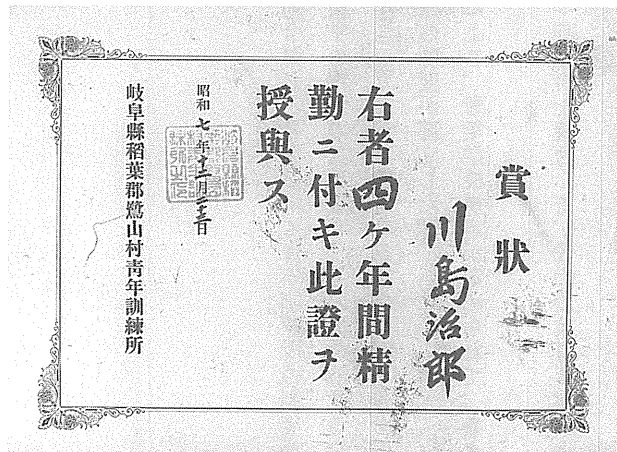 賞狀
川島治郎
右者四ケ年間精
勤ニ付キ此證ヲ
授與ス
昭和七年十二月二十三日
岐阜縣稻葉郡鷺山村靑年訓練所